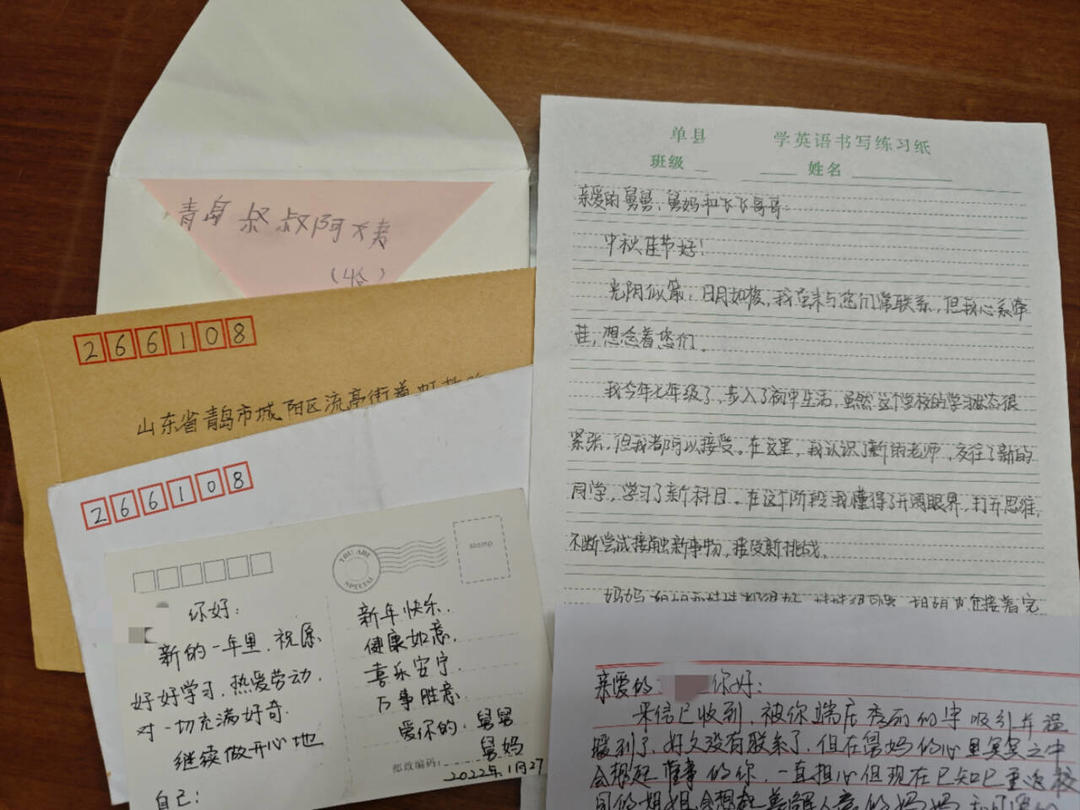 青岛叔叔阿夫妻
(收)
266108
山东省青岛市城阳区流亭街道
266108
YOU ARE SPECIAL
stamp
你好:
新的一年里,祝愿
好好学习,热爱劳动,
对一切充满好奇.
继续做开心地
自己:
新年快乐.
健康如意,
喜乐安宁
万事胜意.
爱你的:舅舅
舅妈
批改编码:
2022年1月27
单县 学英语书写练习纸
班级 姓名
亲爱的舅舅、舅妈和飞飞哥哥:
中秋佳节好!
光阴似箭,日月如梭,我虽未与您们常联系,但我心系牵
挂,想念着您们。
我今年七年级了,步入了初中生活,虽然这个学校的学习状态很
紧张,但我都可以接受。在这里,我认识了新的老师,交往了新的
同学,学习了新科目。在这个阶段我懂得了开阔眼界,打开思维,
不断尝试接触新事物,接受新挑战。
妈妈
亲爱的 你好:
来信已收到,被你端庄秀丽的字吸引并温
暖到了,好久没有联系了,但在舅妈的心里冥冥之中
会想起懂事的你,一直担心但现在已知已重返校
园的姐姐,会想起善解人意的妈妈